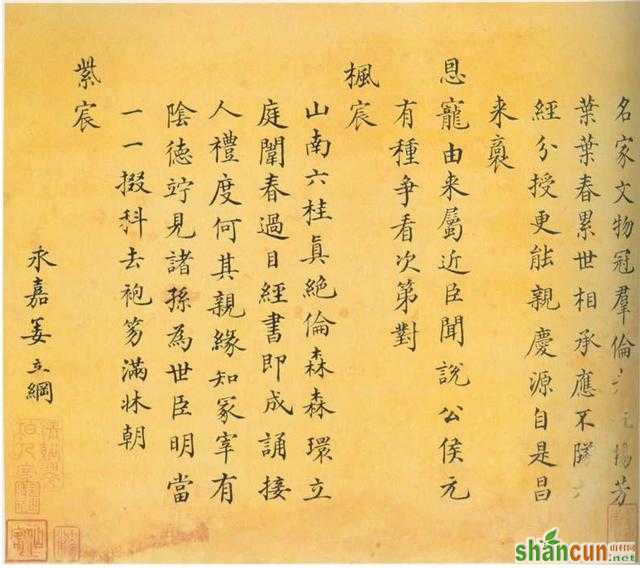 名家文物冠羣倫 楊芳
葉葉春累世相承應不隊
經分授更能親慶源自是昌
来裔
恩寵由来屬近臣聞說公侯元
有種争看次第對
楓宸
山南六桂真絶倫森森環立
庭闈春過目經書即成誦接
人禮度何其親緣知冢宰有
陰德竚見諸孫為世臣明當
一一掇科去袍笏滿牀朝
紫宸
永嘉姜立綱
shancun
山村网
.net